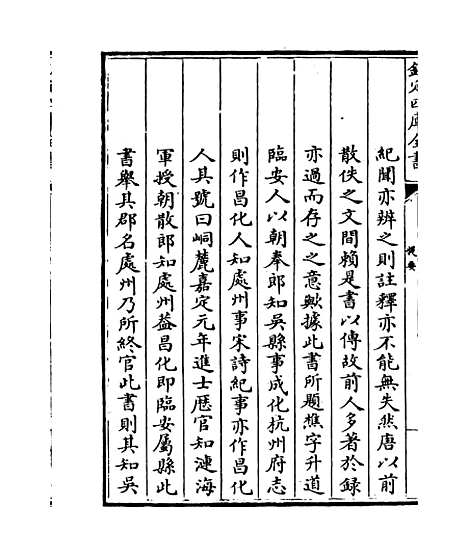 欽定四庫全書
提要
紀聞亦辨之則註釋亦不能無失然唐以前
散佚之文間賴是書以傳故前人多著於録
亦過而存之之意歟據此書所題樵字升道
臨安人以朝奉郎知吳縣事成化杭州府志
則作昌化人知處州事宋詩紀事亦作昌化
人其號曰峒麓嘉定元年進士歴官知漣海
軍授朝散郎知處州葢昌化即臨安屬縣此
書舉其郡名處州乃所終官此書則其知吳